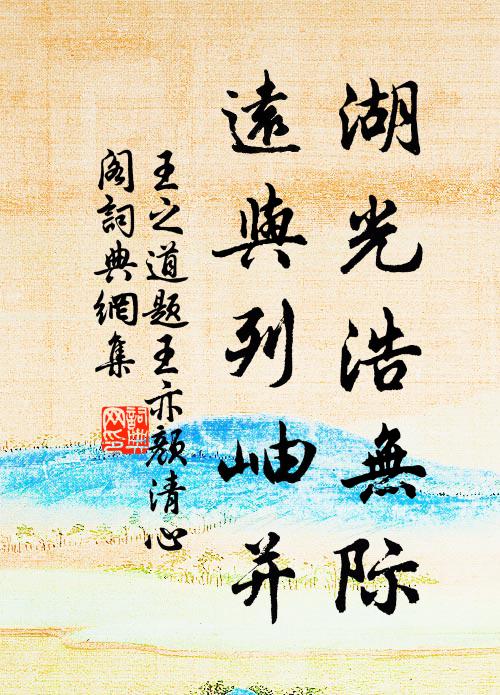 湖光浩無際
遠與列岫并
王之道題王亦顏清心
閣詞典網集
詞典
网印